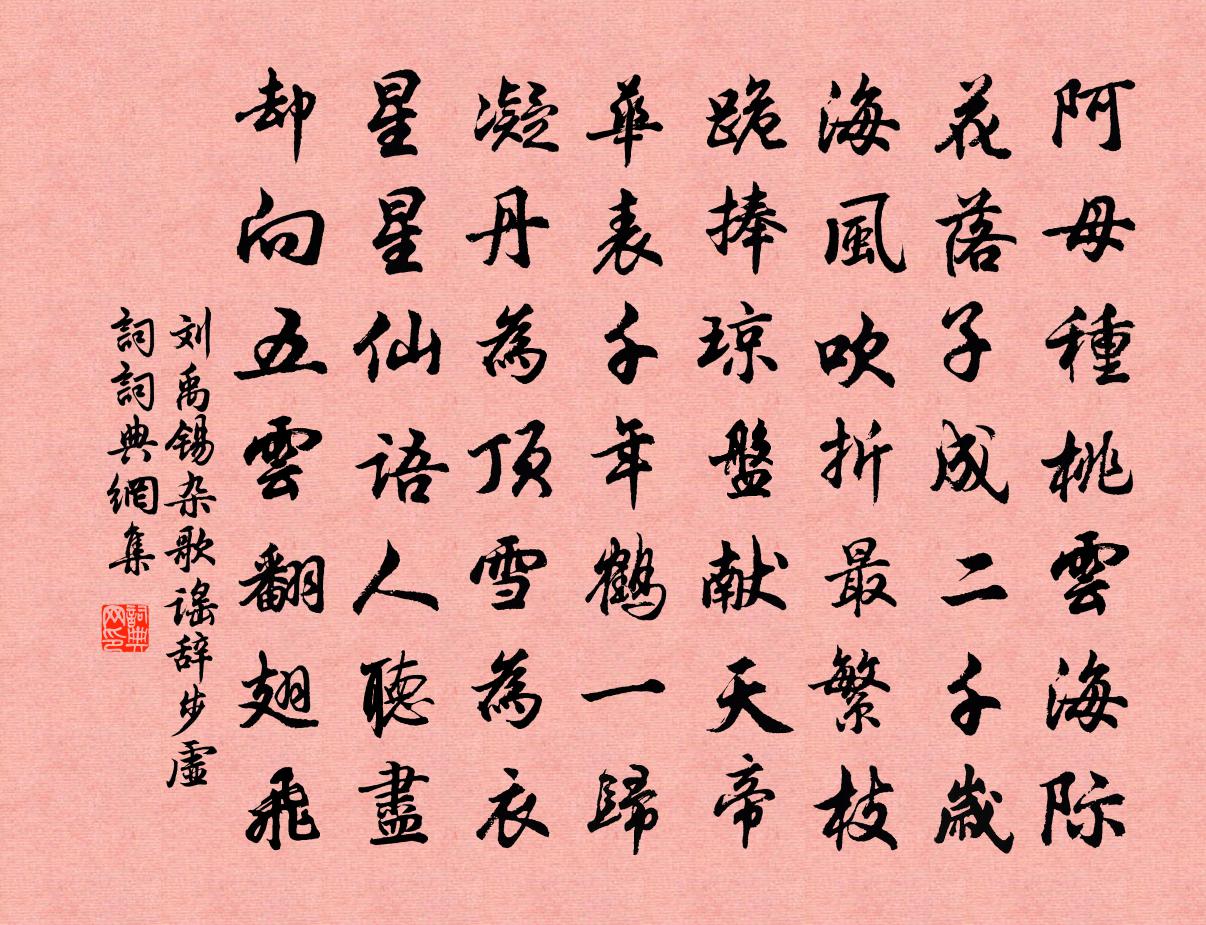 阿母種桃雲海际
花落子成二千歲
海風吹折最繁枝
跪捧琼盤献天帝
華表千年鶴一歸
凝丹為頂雪為衣
星星仙語人聽盡
却向五雲翻翅飛
刘禹锡杂歌谣辞步虛
詞詞典網集
詞典网印